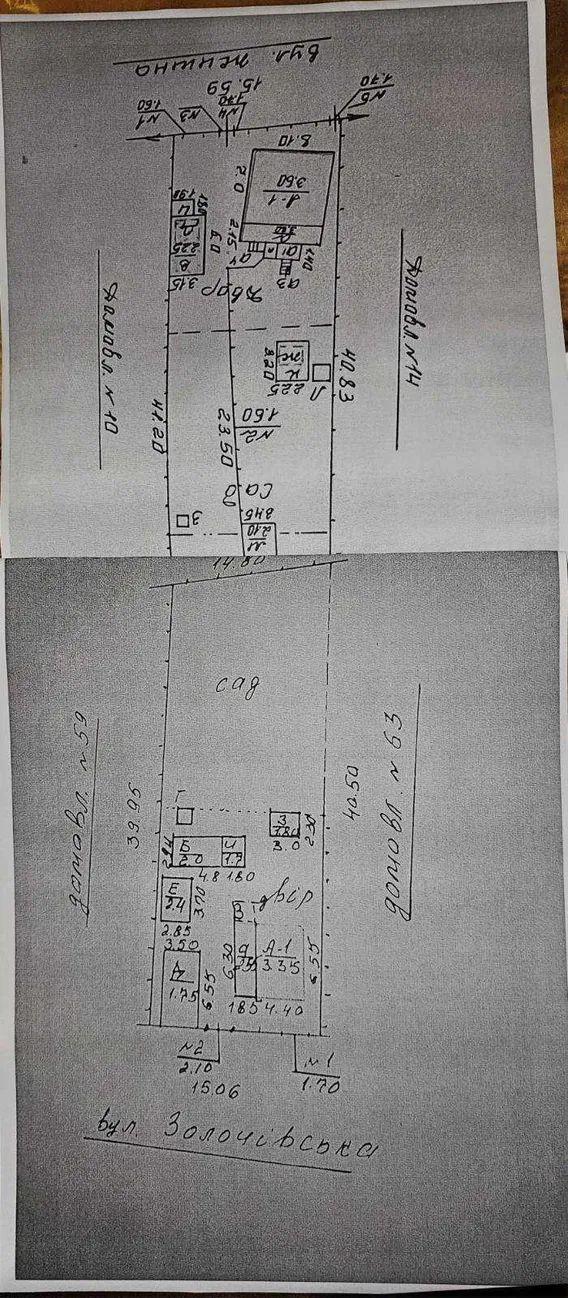 вул. Нечина
15.59
1.70
N5
1.70
N4
N3
1.60
N1
8.10
А-1
3.60
2.0
1.90
1.80
6.0
2.25
В
3.15
2.15
1.40
а1
а3
Двір
Домовл. N 10
Домовл. N 14
41.20
40.83
3.20
К
Ж
2.25
Л
N2
1.60
23.50
Сад
З
3.45
2.10
М
14.80
сад
домовл. N 59
домовл. N 63
39.95
40.50
Г
З
1.80
3.0
2.30
Б
2.0
И
1.7
4.8
1.80
Е
2.4
3.70
2.85
двір
3.50
Д
1.75
6.55
6.30
а
А-1
3.35
6.55
1.85
4.40
N2
2.10
N1
1.70
15.06
вул. Золочівська